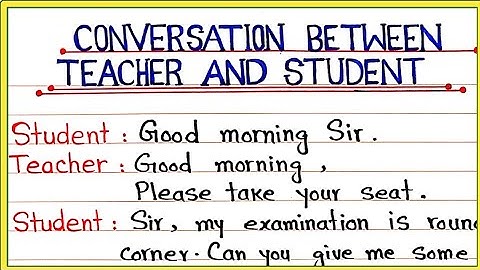 CONVERSATION BETWEEN
TEACHER AND STUDENT
Student : Good morning Sir.
Teacher : Good morning ,
Please take your seat.
Student : Sir, my examination is roun
corner. Can you give me some